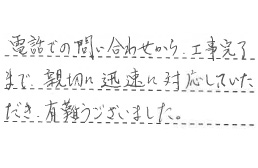 電話での問い合わせから、工事完了
まで、親切に迅速に対応していた
だき、有難うございました。